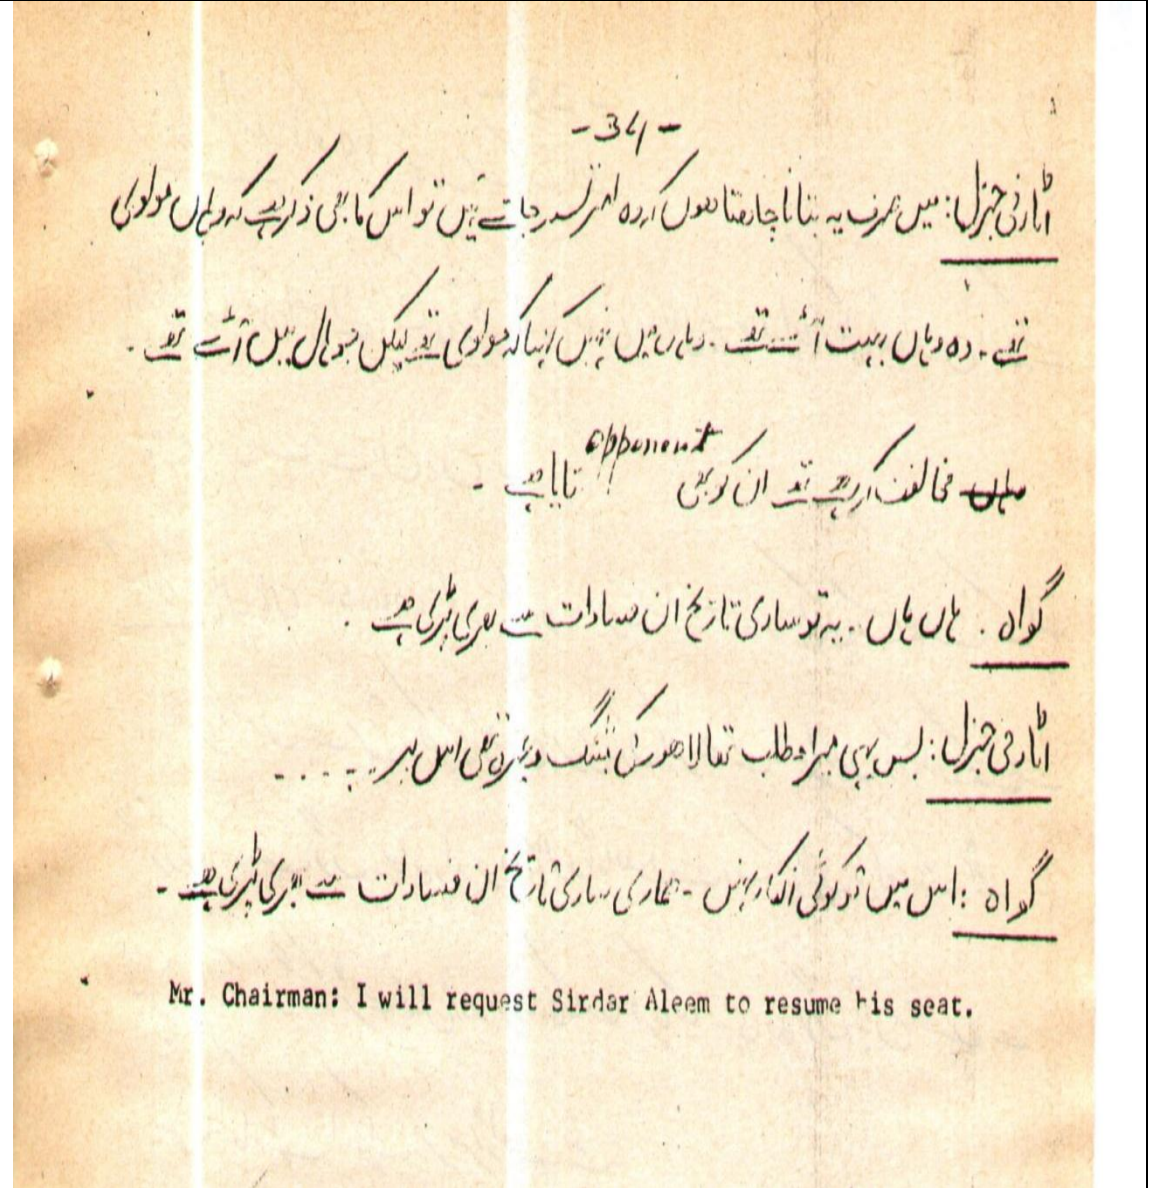 -34-
اٹارنی جنرل: میں صرف یہ بتانا چاہتا ہوں کہ وہ امرتسر جاتے ہیں تو اس کا بھی ذکر ہے کہ وہاں مولوی
تھے۔ وہ وہاں بہت آئے تھے۔ وہاں میں نہیں کہتا کہ مولوی تھے لیکن جو ہال میں آئے تھے۔
مخالفت کر رہے تھے ان کو بھی opponent بتایا ہے۔
گواہ۔ ہاں ہاں۔ یہ تو ساری تاریخ ان فسادات سے بھری پڑی ہے۔
اٹارنی جنرل: بس یہی میرا مطلب تھا لاہور کی وغیرہ تھی اس پر ۔۔۔۔۔
گواہ: اس میں تو کوئی انکار نہیں۔ ہماری ساری تاریخ ان فسادات سے بھری پڑی ہے۔
Mr. Chairman: I will request Sirdar Aleem to resume his seat.